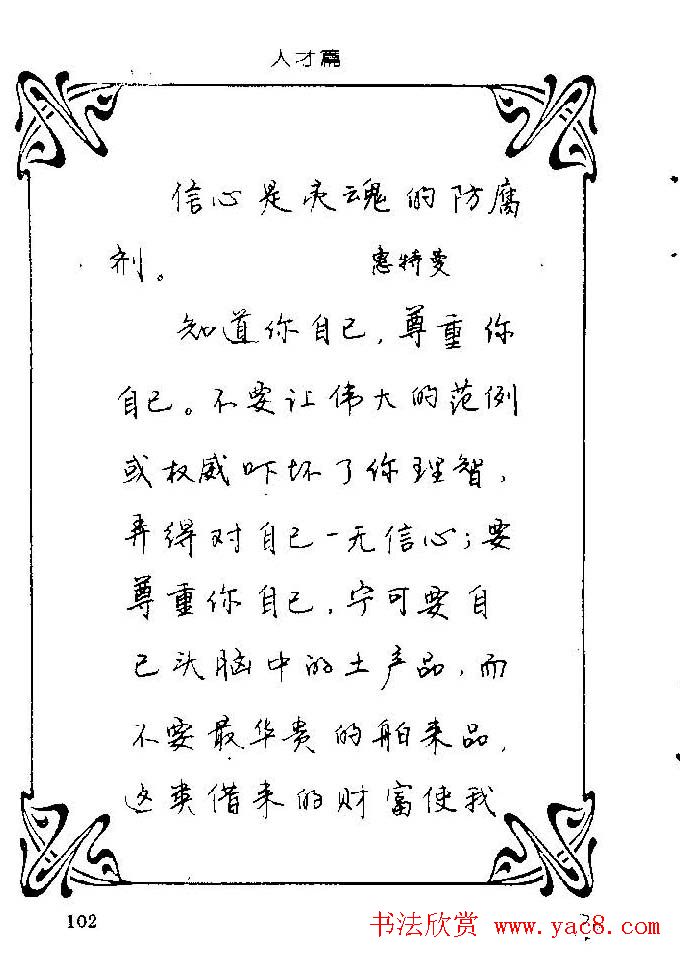 人才篇
信心是灵魂的防腐
剂。 惠特曼
知道你自己,尊重你
自己。不要让伟大的范例
或权威吓坏了你理智,
弄得对自己一无信心;要
尊重你自己,宁可要自
己头脑中的土产品,而
不要最华贵的舶来品,
这类借来的财富使我
102
书法欣赏 www.yac8.com